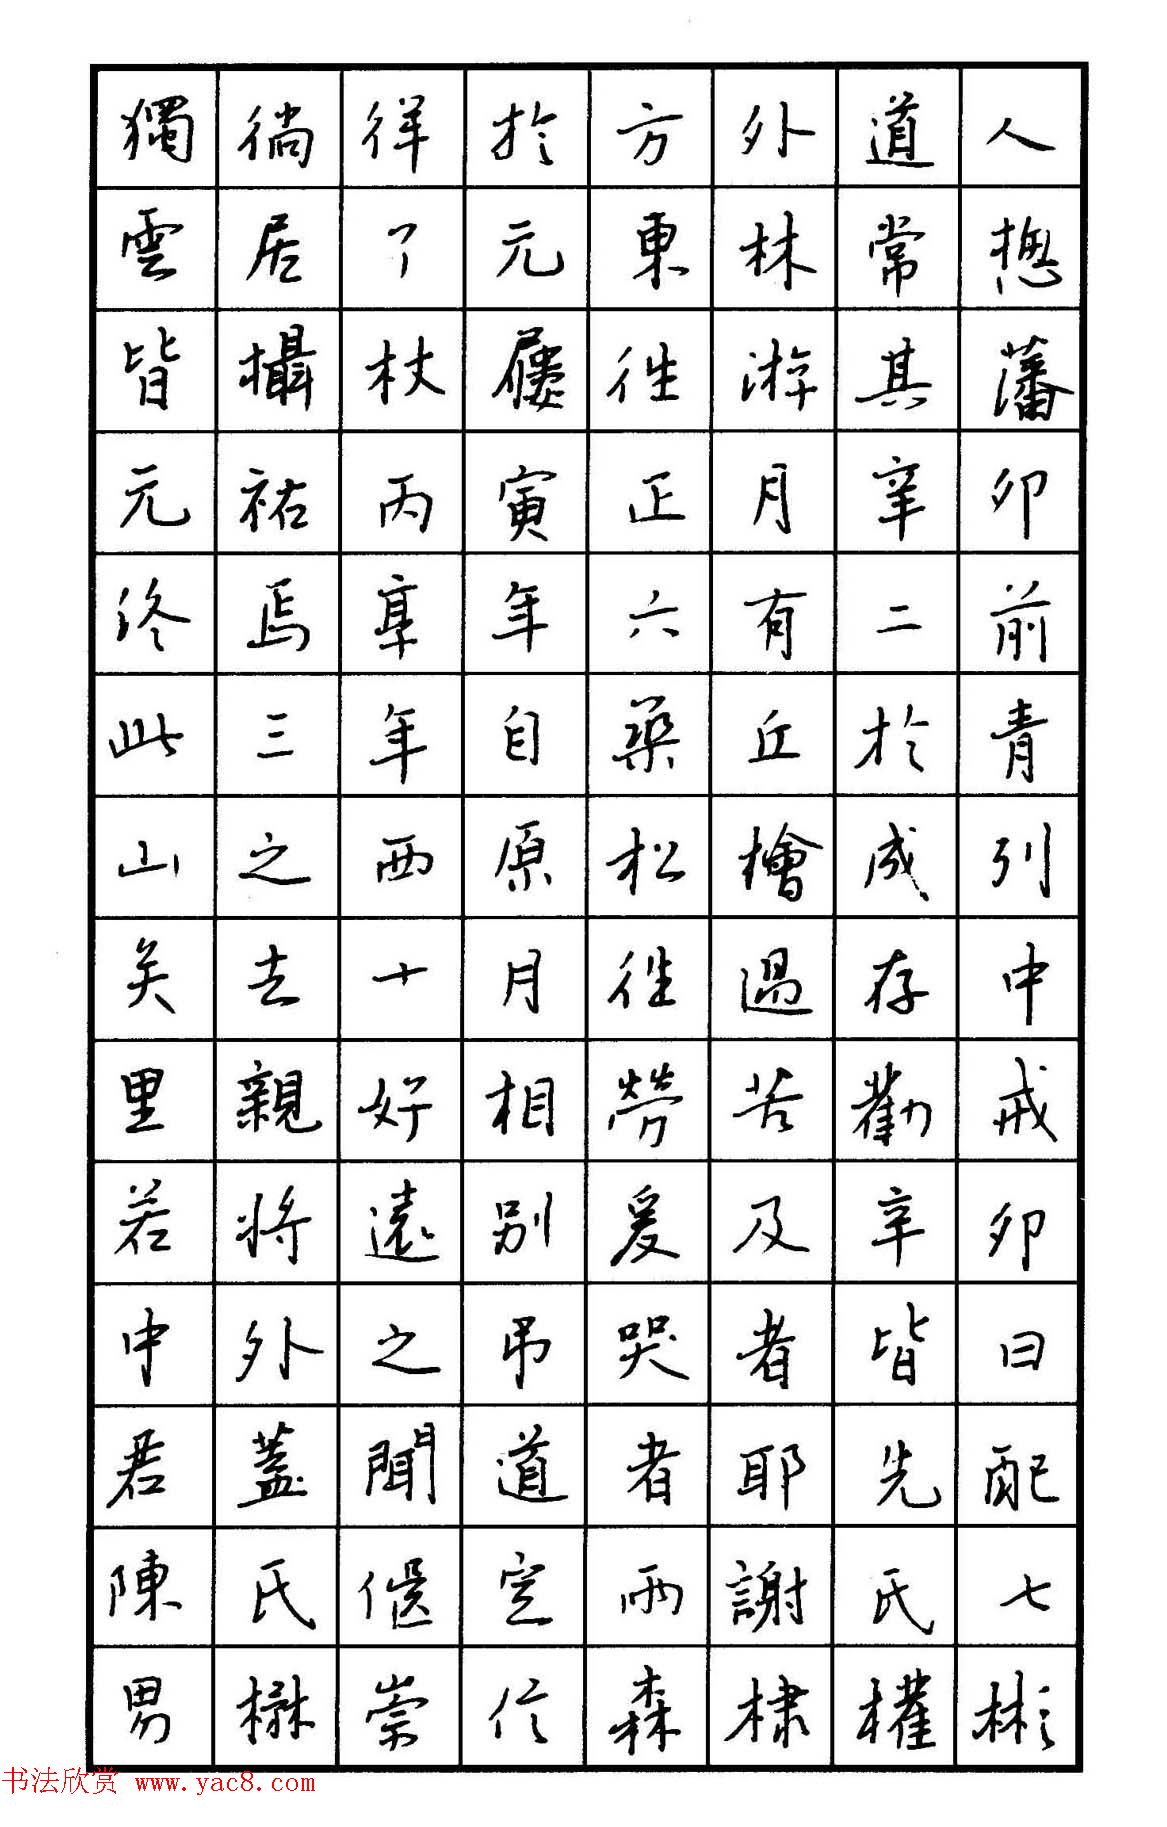 獨徜徉於方外道人
雲居了元東林常揔
皆攝杖屨往游其藩
元祐丙寅正月辛卯
終焉享年六有二前
此三年自築丘於青
山之西原松檜成列
矣去十月往過存中
里親好相勞苦勸戒
若將遠別爰及辛卯
中外之弔哭者皆曰
君蓋聞道者耶先配
陳氏兩謝氏七
男楙崇信森棣權彬
书法欣赏 www.yac8.com